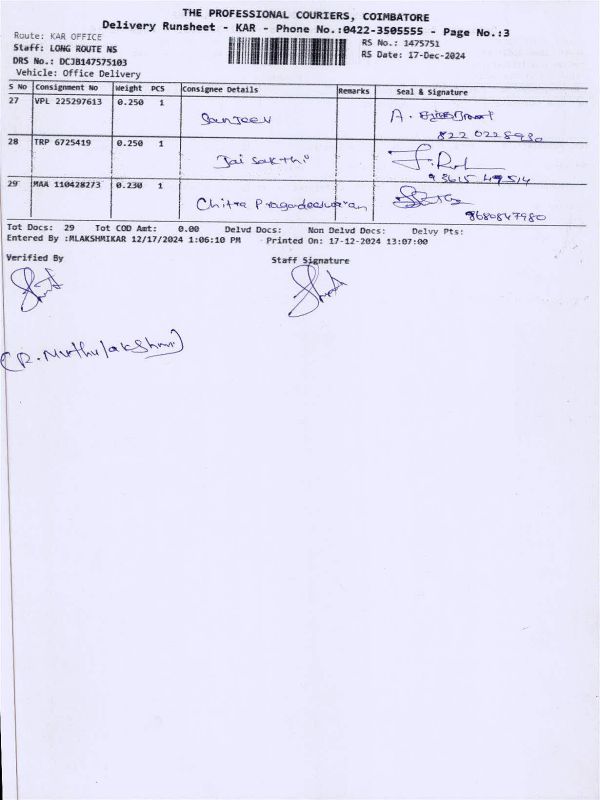 THE PROFESSIONAL COURIERS, COIMBATORE
Delivery Runsheet - KAR - Phone No.:0422-3505555 - Page No.:3
Route: KAR OFFICE
RS No.: 1475751
Staff: LONG ROUTE NS
RS Date: 17-Dec-2024
DRS No.: DCJB147575103
Vehicle: Office Delivery
S No Consignment No Weight PCS Consignee Details Remarks Seal & Signature
27 VPL 225297613 0.250 1 Sanjeev A.
8220228930
28 TRP 6725419 0.250 1 Jai Sakthi
93615 49514
29 MAA 110428273 0.230 1 Chitra
9680847980
Tot Docs: 29 Tot COD Amt: 0.00 Delvd Docs: Non Delvd Docs: Delvy Pts:
Entered By :MLAKSHMIKAR 12/17/2024 1:06:10 PM Printed On: 17-12-2024 13:07:00
Verified By Staff Signature
(R. Muthulakshmi)